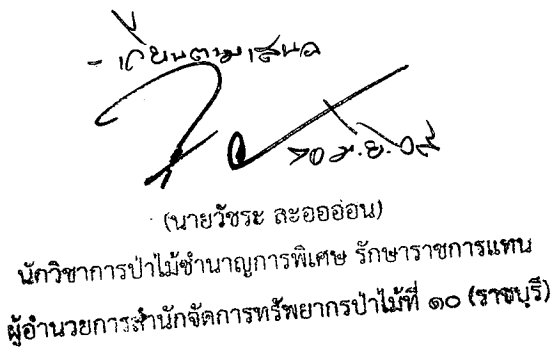 - เรียนตามเสนอ
(นายวัชระ ละอออ่อน)
นักวิชาการป่าไม้ชำนาญการพิเศษ รักษาราชการแทน
ผู้อำนวยการสำนักจัดการทรัพยากรป่าไม้ที่ ๑๐ (ราชบุรี)